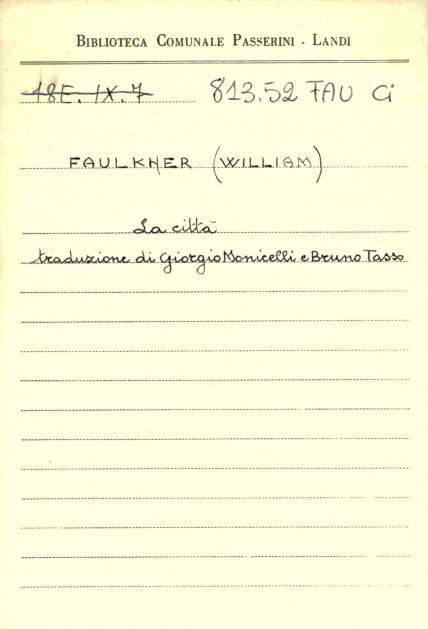 BIBLIOTECA COMUNALE PASSERINI - LANDI
18E. IX. 7 813.52 FAU Ci
FAULKNER (WILLIAM)
La città
traduzione di Giorgio Monicelli e Bruno Tasso